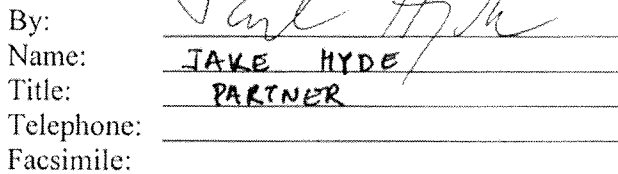 By:
Name: JAKE HYDE
Title: PARTNER
Telephone:
Facsimile: